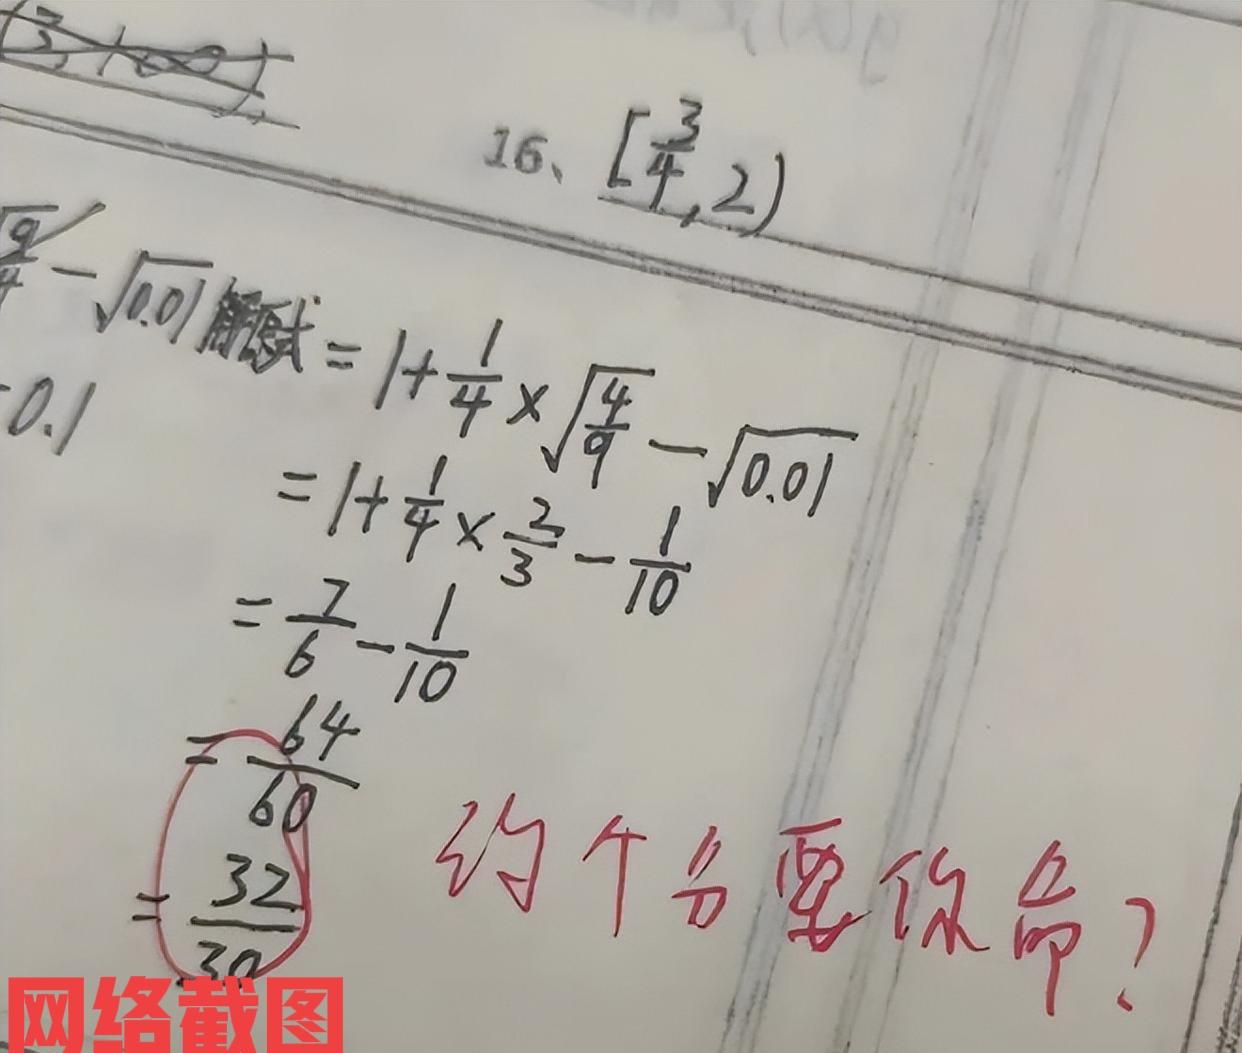 16、[3/4, 2)
-√0.01 解原式 = 1+1/4×√(4/9)-√0.01
0.1
=1+1/4×2/3-1/10
=7/6-1/10
=64/60
=32/30
约个分要你命?
网络截图